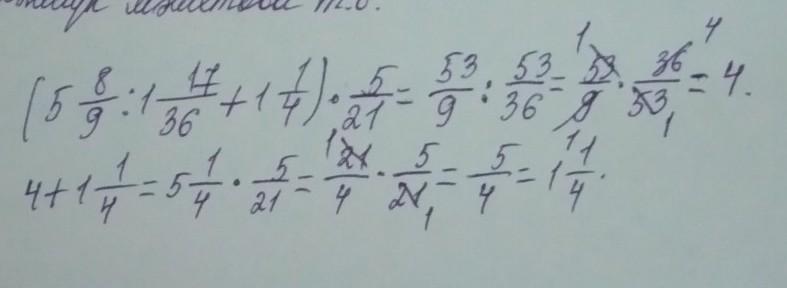 т.о.
(5 8/9 : 1 17/36 + 1 1/4) · 5/21 = 53/9 : 53/36 = 53/9 · 36/53 = 4.
4 + 1 1/4 = 5 1/4 · 5/21 = 21/4 · 5/21 = 5/4 = 1 1/4.